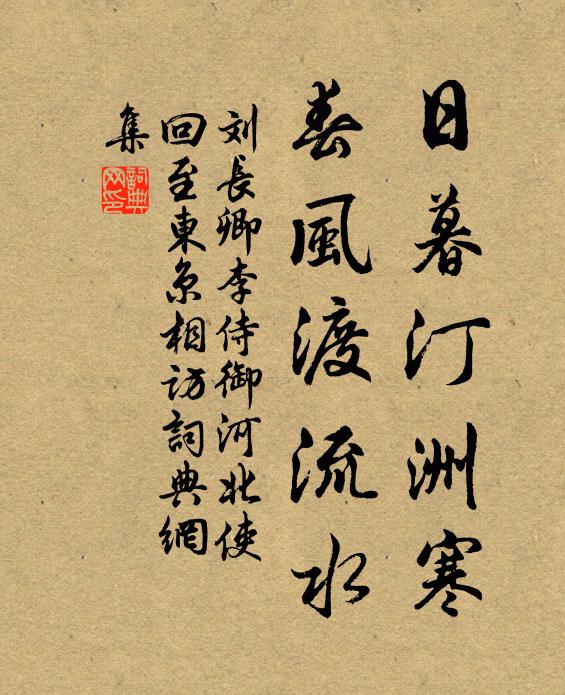 日暮汀洲寒
春風渡流水
刘長卿李侍御河北使
回至東京相访詞典網
集
詞典
网印